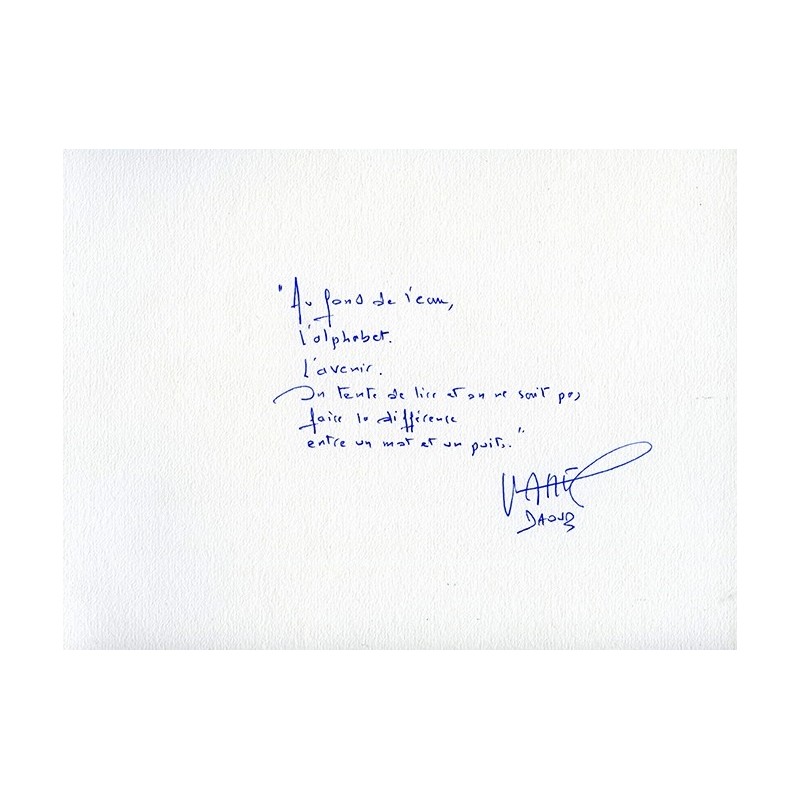 "Au fond de l'eau,
l'alphabet.
L'avenir.
On tente de lire et on ne sait pas
faire la différence
entre un mot et un puits."
KAMEL
DAOUD